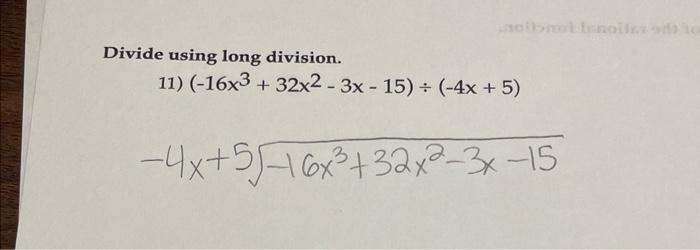 Divide using long division.
11) (-16x³ + 32x² - 3x - 15) ÷ (-4x + 5)
-4x+5√-16x³+32x²-3x-15